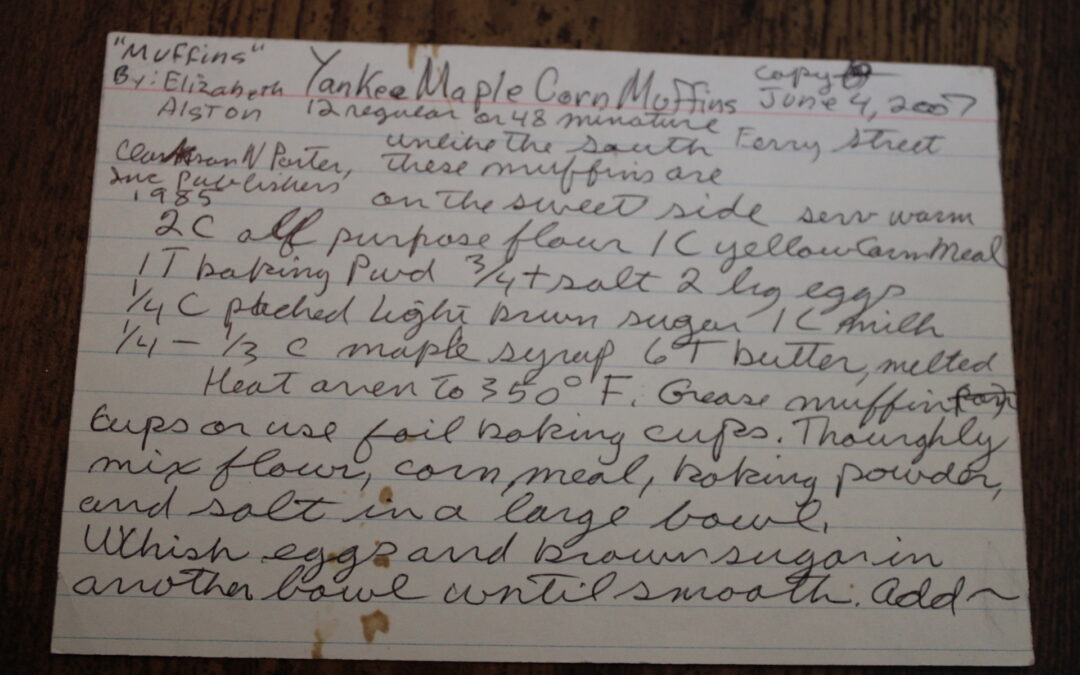 "Muffins"
By: Elizabeth
Alston
Yankee Maple Corn Muffins
copy
June 4, 2007
12 regular or 48 minature
Ferry Street
Clarkson N Porter,
Inc Publishers
1985
unlike the south
these muffins are
on the sweet side serv warm
2C all purpose flour 1C yellow Corn Meal
1T baking Pwd 3/4 t salt 2 lrg eggs
1/4 C packed light brown sugar 1C milk
1/4 - 1/3 c maple syrup 6T butter, melted
Heat oven to 350° F. Grease muffin
cups or use foil baking cups. Thourghly
mix flour, corn meal, baking powder,
and salt in a large bowl.
Whish eggs and brown sugar in
another bowl until smooth. Add~